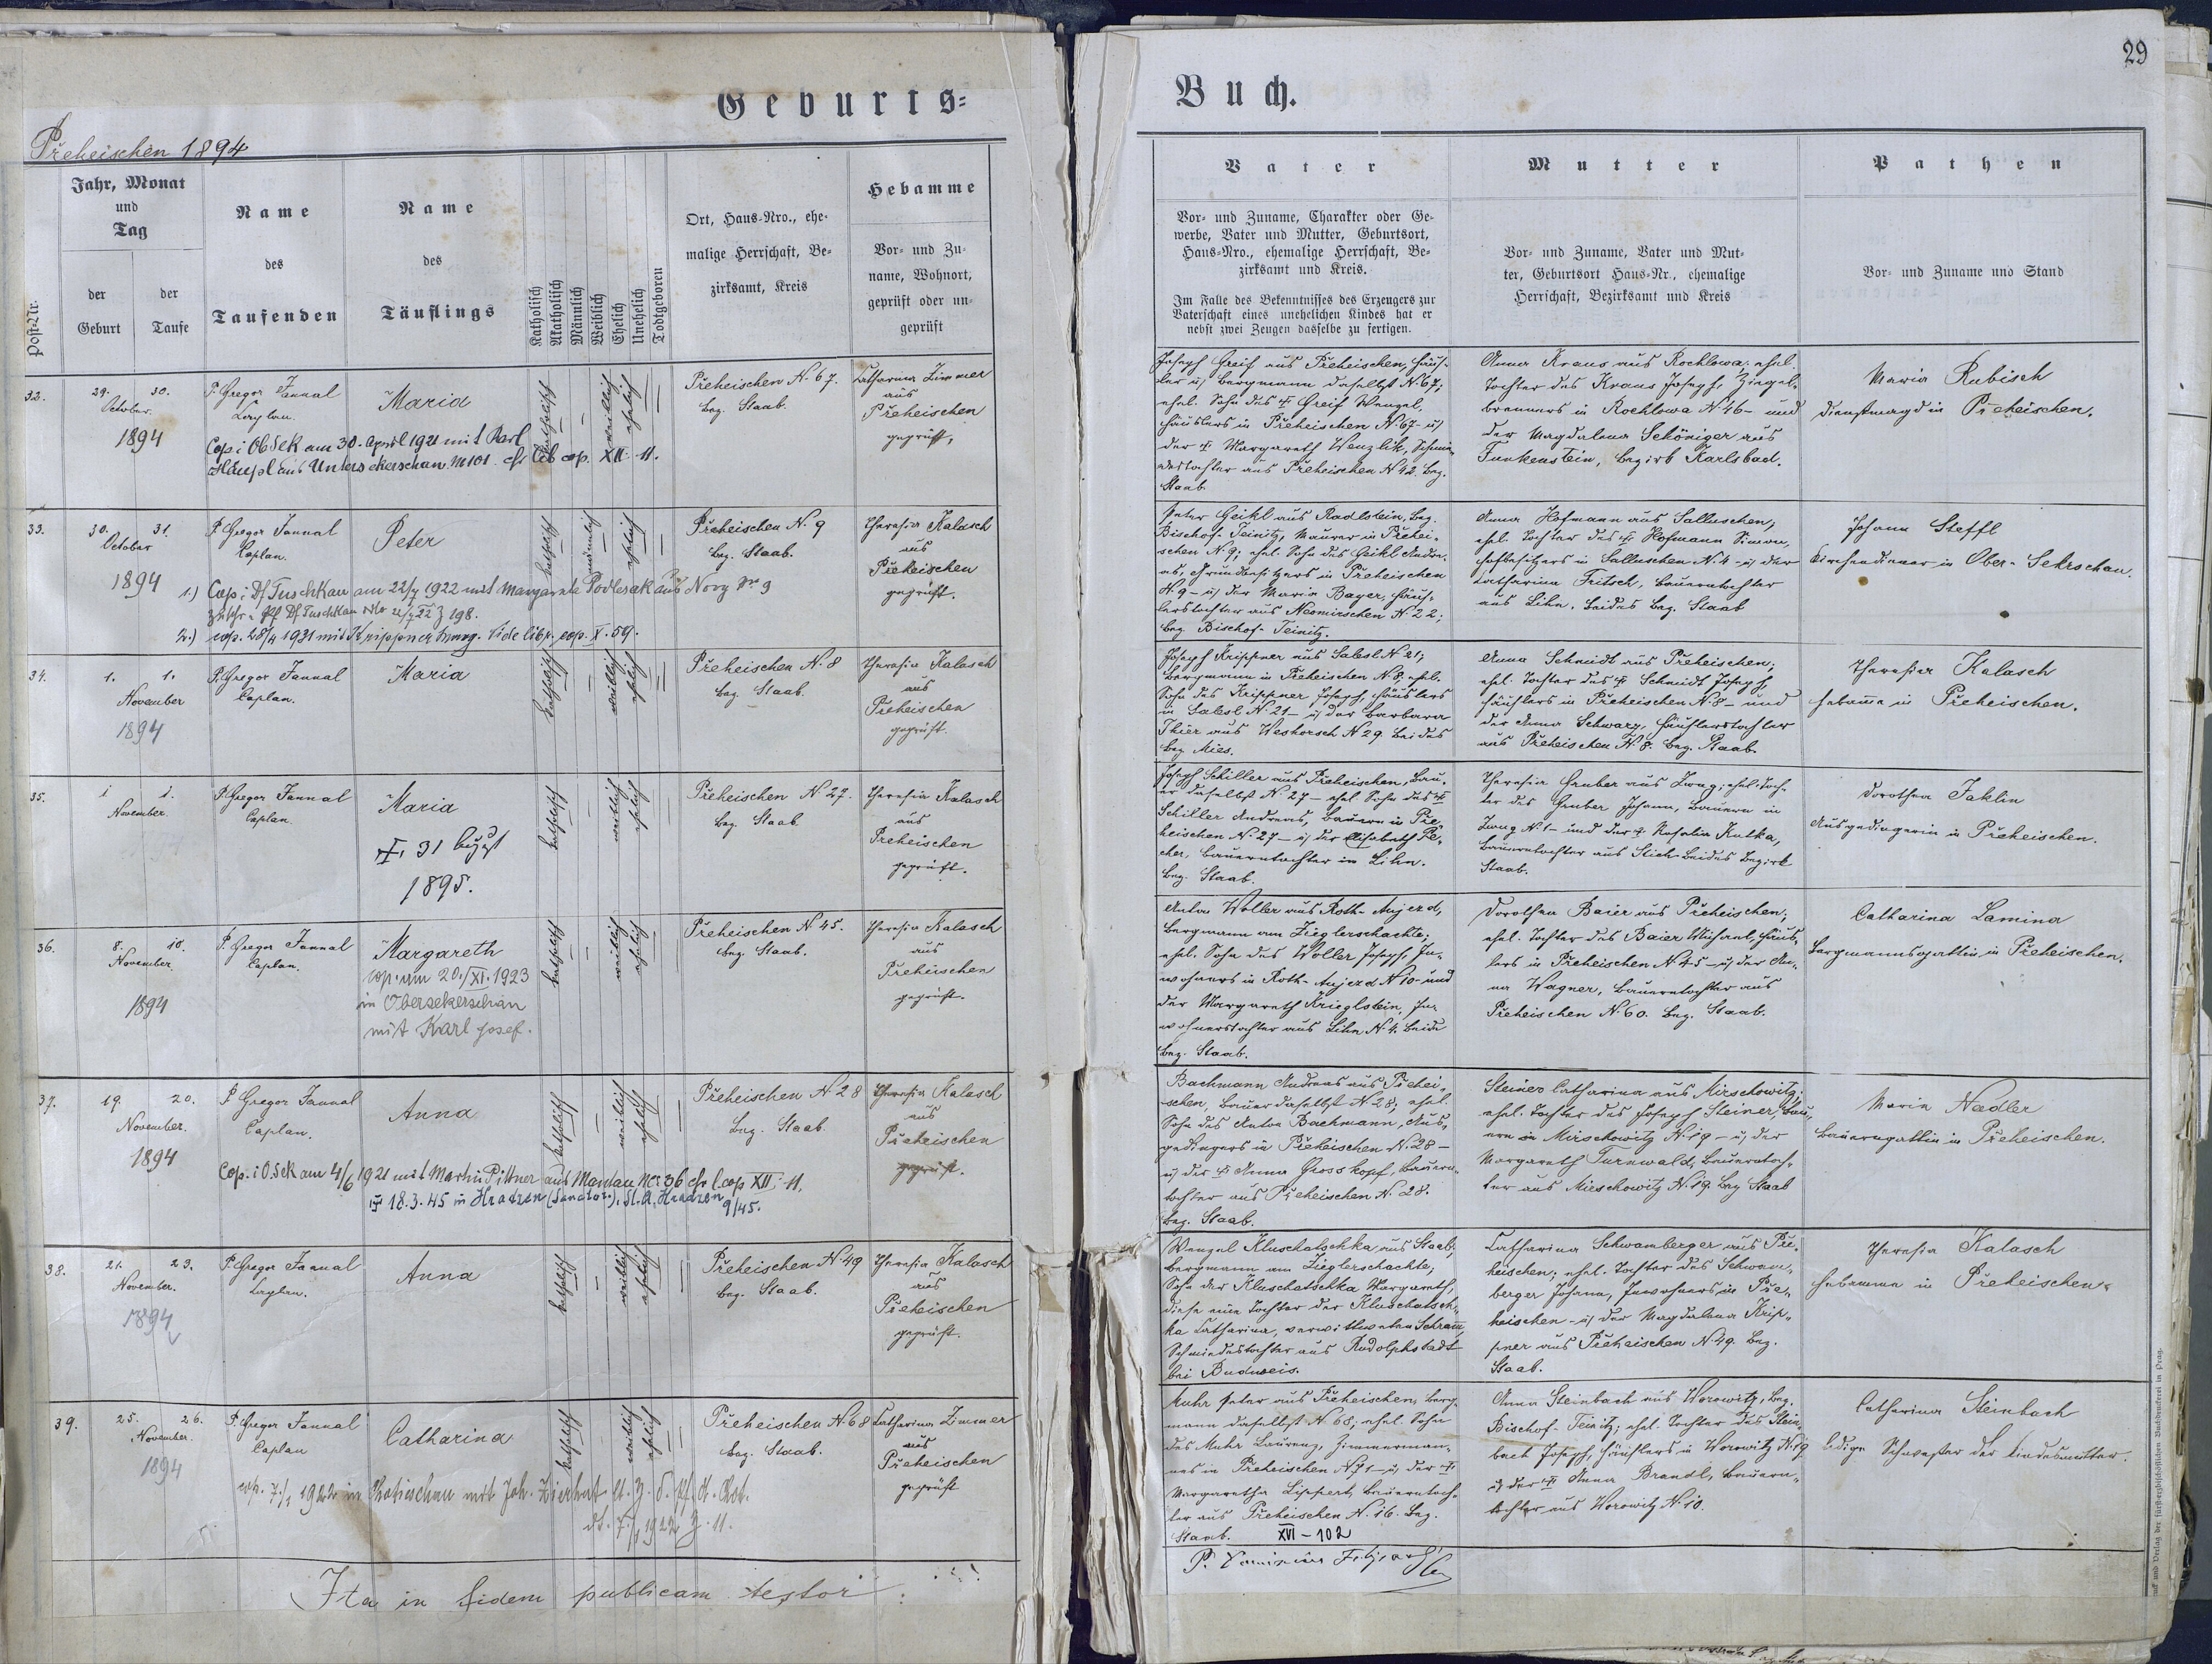 Geburts=
Přeheischen 1894
Post-Nr.
Jahr, Monat
und
Tag
der
Geburt
der
Taufe
Name
des
Taufenden
Name
des
Täuflings
Katholisch
Akatholisch
Männlich
Weiblich
Ehelich
Unehelich
Todtgeboren
Ort, Haus-Nro., ehe-
malige Herrschaft, Be-
zirksamt, Kreis
Hebamme
Vor- und Zu-
name, Wohnort,
geprüft oder un-
geprüft
32.
29. 30.
October.
1894
P. Gregor Jannal
Caplan.
Maria
katholisch
weiblich
ehelich
Přeheischen N. 67.
Bez. Staab.
Catharina Zimmer
aus
Přeheischen
geprüft,
Cop: i ObSek am 30. April 1921 mit Karl
aus Untersekerschan N 101. cop. XII. 11.
33.
30. 31.
October
1894
P. Gregor Jannal
Caplan.
Peter
katholisch
männlich
ehelich
Přeheischen N. 9
Bez. Staab.
Theresia Kalasch
aus
Přeheischen
geprüft.
1.) Cop: i Df Tuschkau am 22/7 1922 mit Margarete Podlesak aus Novy No 9
Df. Tuschkau Z 198.
2.) cop. 28/4 1931 mit Krippner Marg. Vide libr. cop. X. 59.
34.
1. 1.
November
1894
P. Gregor Jannal
Caplan.
Maria
katholisch
weiblich
ehelich
Přeheischen N. 8
Bez. Staab.
Theresia Kalasch
aus
Přeheischen
geprüft.
35.
1 1.
November.
P. Gregor Jannal
Caplan.
Maria
31
1895.
katholisch
weiblich
ehelich
Přeheischen N 27.
Bez. Staab.
Theresia Kalasch
aus
Přeheischen
geprüft.
36.
8. 10.
November.
1894
P. Gregor Jannal
Caplan.
Margareth
cop. am 20./XI. 1923
in Obersekerschan
mit Karl Josef.
katholisch
weiblich
ehelich
Přeheischen N 45.
Bez. Staab.
Theresia Kalasch
aus
Přeheischen
geprüft.
37.
19. 20.
November.
1894
P. Gregor Jannal
Caplan.
Anna
katholisch
weiblich
ehelich
Přeheischen N 28
Bez. Staab.
Theresia Kalasch
aus
Přeheischen
geprüft.
Cop. i O.Sek am 4/6 1921 mit Martin Pittner aus Mantau No 36 l. cop XII. 11.
18.3.45 in Hradzen (Sanator.), St.A. Hradzen 9/45.
38.
21. 23.
November.
1894
P. Gregor Jannal
Caplan.
Anna
katholisch
weiblich
ehelich
Přeheischen N 49
Bez. Staab.
Theresia Kalasch
aus
Přeheischen
geprüft.
39.
25. 26.
November.
1894
P. Gregor Jannal
Caplan
Catharina
katholisch
weiblich
ehelich
Přeheischen N. 68
Bez. Staab.
Catharina Zimmer
aus
Přeheischen
geprüft
cop. 7./1 1922 in Chotieschau mit Joh.
dt. 7./1 1922 Z. 11.
Ita in fidem publicam testor
29
Buch.
Vater
Vor- und Zuname, Charakter oder Ge-
werbe, Vater und Mutter, Geburtsort,
Haus-Nro., ehemalige Herrschaft, Be-
zirksamt und Kreis.
Im Falle des Bekenntnisses des Erzeugers zur
Vaterschaft eines unehelichen Kindes hat er
nebst zwei Zeugen dasselbe zu fertigen.
Mutter
Vor- und Zuname, Vater und Mut-
ter, Geburtsort Haus-Nr., ehemalige
Herrschaft, Bezirksamt und Kreis
Pathen
Vor- und Zuname und Stand
Joseph Greif aus Přeheischen, Häus-
ler u. Bergmann daselbst N. 67;
ehel. Sohn des † Greif Wenzel,
Häuslers in Přeheischen N. 67 - u.
der † Margareth Wenzlik,
aus Přeheischen N 42. Bez.
Staab.
Anna Kraus aus Rochlowa; ehel.
Tochter des Kraus Joseph, Ziegel-
brenners in Rochlowa N 46 - und
der Magdalena Schöniger aus
Funkenstein, Bezirk Karlsbad.
Maria Rubisch
Dienstmagd in Přeheischen.
Peter Geikl aus Radlstein, Bez.
Bischof-Teinitz, Maurer in Přehei-
schen N. 9; ehel. Sohn des Geikl Andre-
as, Grundbesitzers in Přeheischen
N. 9 - u. der Maria Bayer, Häus-
lerstochter aus Neomirschen N 22;
Bez Bischof-Teinitz.
Anna Hofmann aus Salluschen;
ehel. Tochter des † Hofmann Simon,
Hofbesitzers in Salluschen N. 4 - u. der
Catharina Fritsch, Bauerntochter
aus Lihn. beides Bez. Staab
Johann Steffl
Kirchendiener in Ober-Sekrschan.
Joseph Krippner aus Salesl N 21;
Bergmann in Přeheischen N 8; ehel.
Sohn des Krippner Joseph, Häuslers
in Salesl N. 21 - u. der Barbara
Thier aus Weshorsch N 29. beides
Bez Mies.
Anna Schmidt aus Přeheischen;
ehel. Tochter des † Schmidt Joseph,
Häuslers in Přeheischen N. 8 - und
der Anna Schwarz, Häuslerstochter
aus Přeheischen N. 8. Bez. Staab.
Theresia Kalasch
Hebame in Přeheischen.
Joseph Schiller aus Přeheischen, Bau-
er daselbst N. 27 - ehel. Sohn des †
Schiller Andreas, Bauern in Pře-
heischen N. 27 - u. der Elisabeth Pe-
cher, Bauerntochter in Lihn.
Bez. Staab.
Theresia Gruber aus Zwug; ehel. Toch-
ter des Gruber Johann, Bauern in
Zwug N. 1 - und der † Rosalia Kutka,
Bauerntochter aus Stich. beides Bezirk
Staab.
Dorothea Jaklin
Ausgedingerin in Přeheischen.
Anton Woller aus Roth-Aujezd,
Bergmann am Zieglerschachte;
ehel. Sohn des Woller Joseph, In-
wohners in Roth-Aujezd N 10 - und
der Margareth Krieglstein, In-
wohnerstochter aus Lihn N. 4. beide
Bez. Staab.
Dorothea Baier aus Přeheischen;
ehel. Tochter des Baier Michael, Häus-
lers in Přeheischen N 45 - u. der An-
na Wagner, Bauerntochter aus
Přeheischen N. 60. Bez. Staab.
Catharina Lamina
Bergmannsgattin in Přeheischen.
Bachmann Andreas aus Přehei-
schen, Bauer daselbst N 28; ehel.
Sohn des Anton Bachmann, Aus-
gedingers in Přeheischen N. 28 -
u. der † Anna Grosskopf, Bauern-
tochter aus Přeheischen N. 28.
Bez. Staab.
Steiner Catharina aus Mirschowitz;
ehel. Tochter des Joseph Steiner, Bau-
ern in Mirschowitz N. 19 - u. der
Margareth Turnwald, Bauerntoch-
ter aus Mirschowitz N. 19. Bez Staab
Maria Nedler
Bauerngattin in Přeheischen.
Wenzel Kluschatschka aus Staab;
Bergmann am Zieglerschachte;
Sohn der Kluschatschka Margareth,
diese eine Tochter der Kluschatsch-
ka Catharina, verwittweten Schram,
Schmiedestochter aus Rudolphstadt
bei Budweis.
Catharina Schwamberger aus Pře-
heischen; ehel. Tochter des Schwam-
berger Johann, Inwohners in Pře-
heischen - u. der Magdalena Krip-
pner aus Přeheischen N. 49. Bez.
Staab.
Theresia Kalasch
Hebamme in Přeheischen.
Muhr Peter aus Přeheischen, Berg-
mann daselbst N. 68; ehel. Sohn
des Muhr Laurenz, Zimmerman-
nes in Přeheischen N 71 - u. der †
Margaretha Lippert, Bauerntoch-
ter aus Přeheischen N. 16. Bez.
Staab. XVI - 102
Anna Steinbach aus Worowitz, Bez.
Bischof-Teinitz; ehel. Tochter des Stein-
bach Joseph, Häuslers in Worowitz N. 19
u. der † Anna Brandl, Bauern-
tochter aus Worowitz N. 10.
Catharina Steinbach
ledige Schwester der Kindesmutter.
P.
Druck und Verlag der fürst-erzbischöflichen Buchdruckerei in Prag.